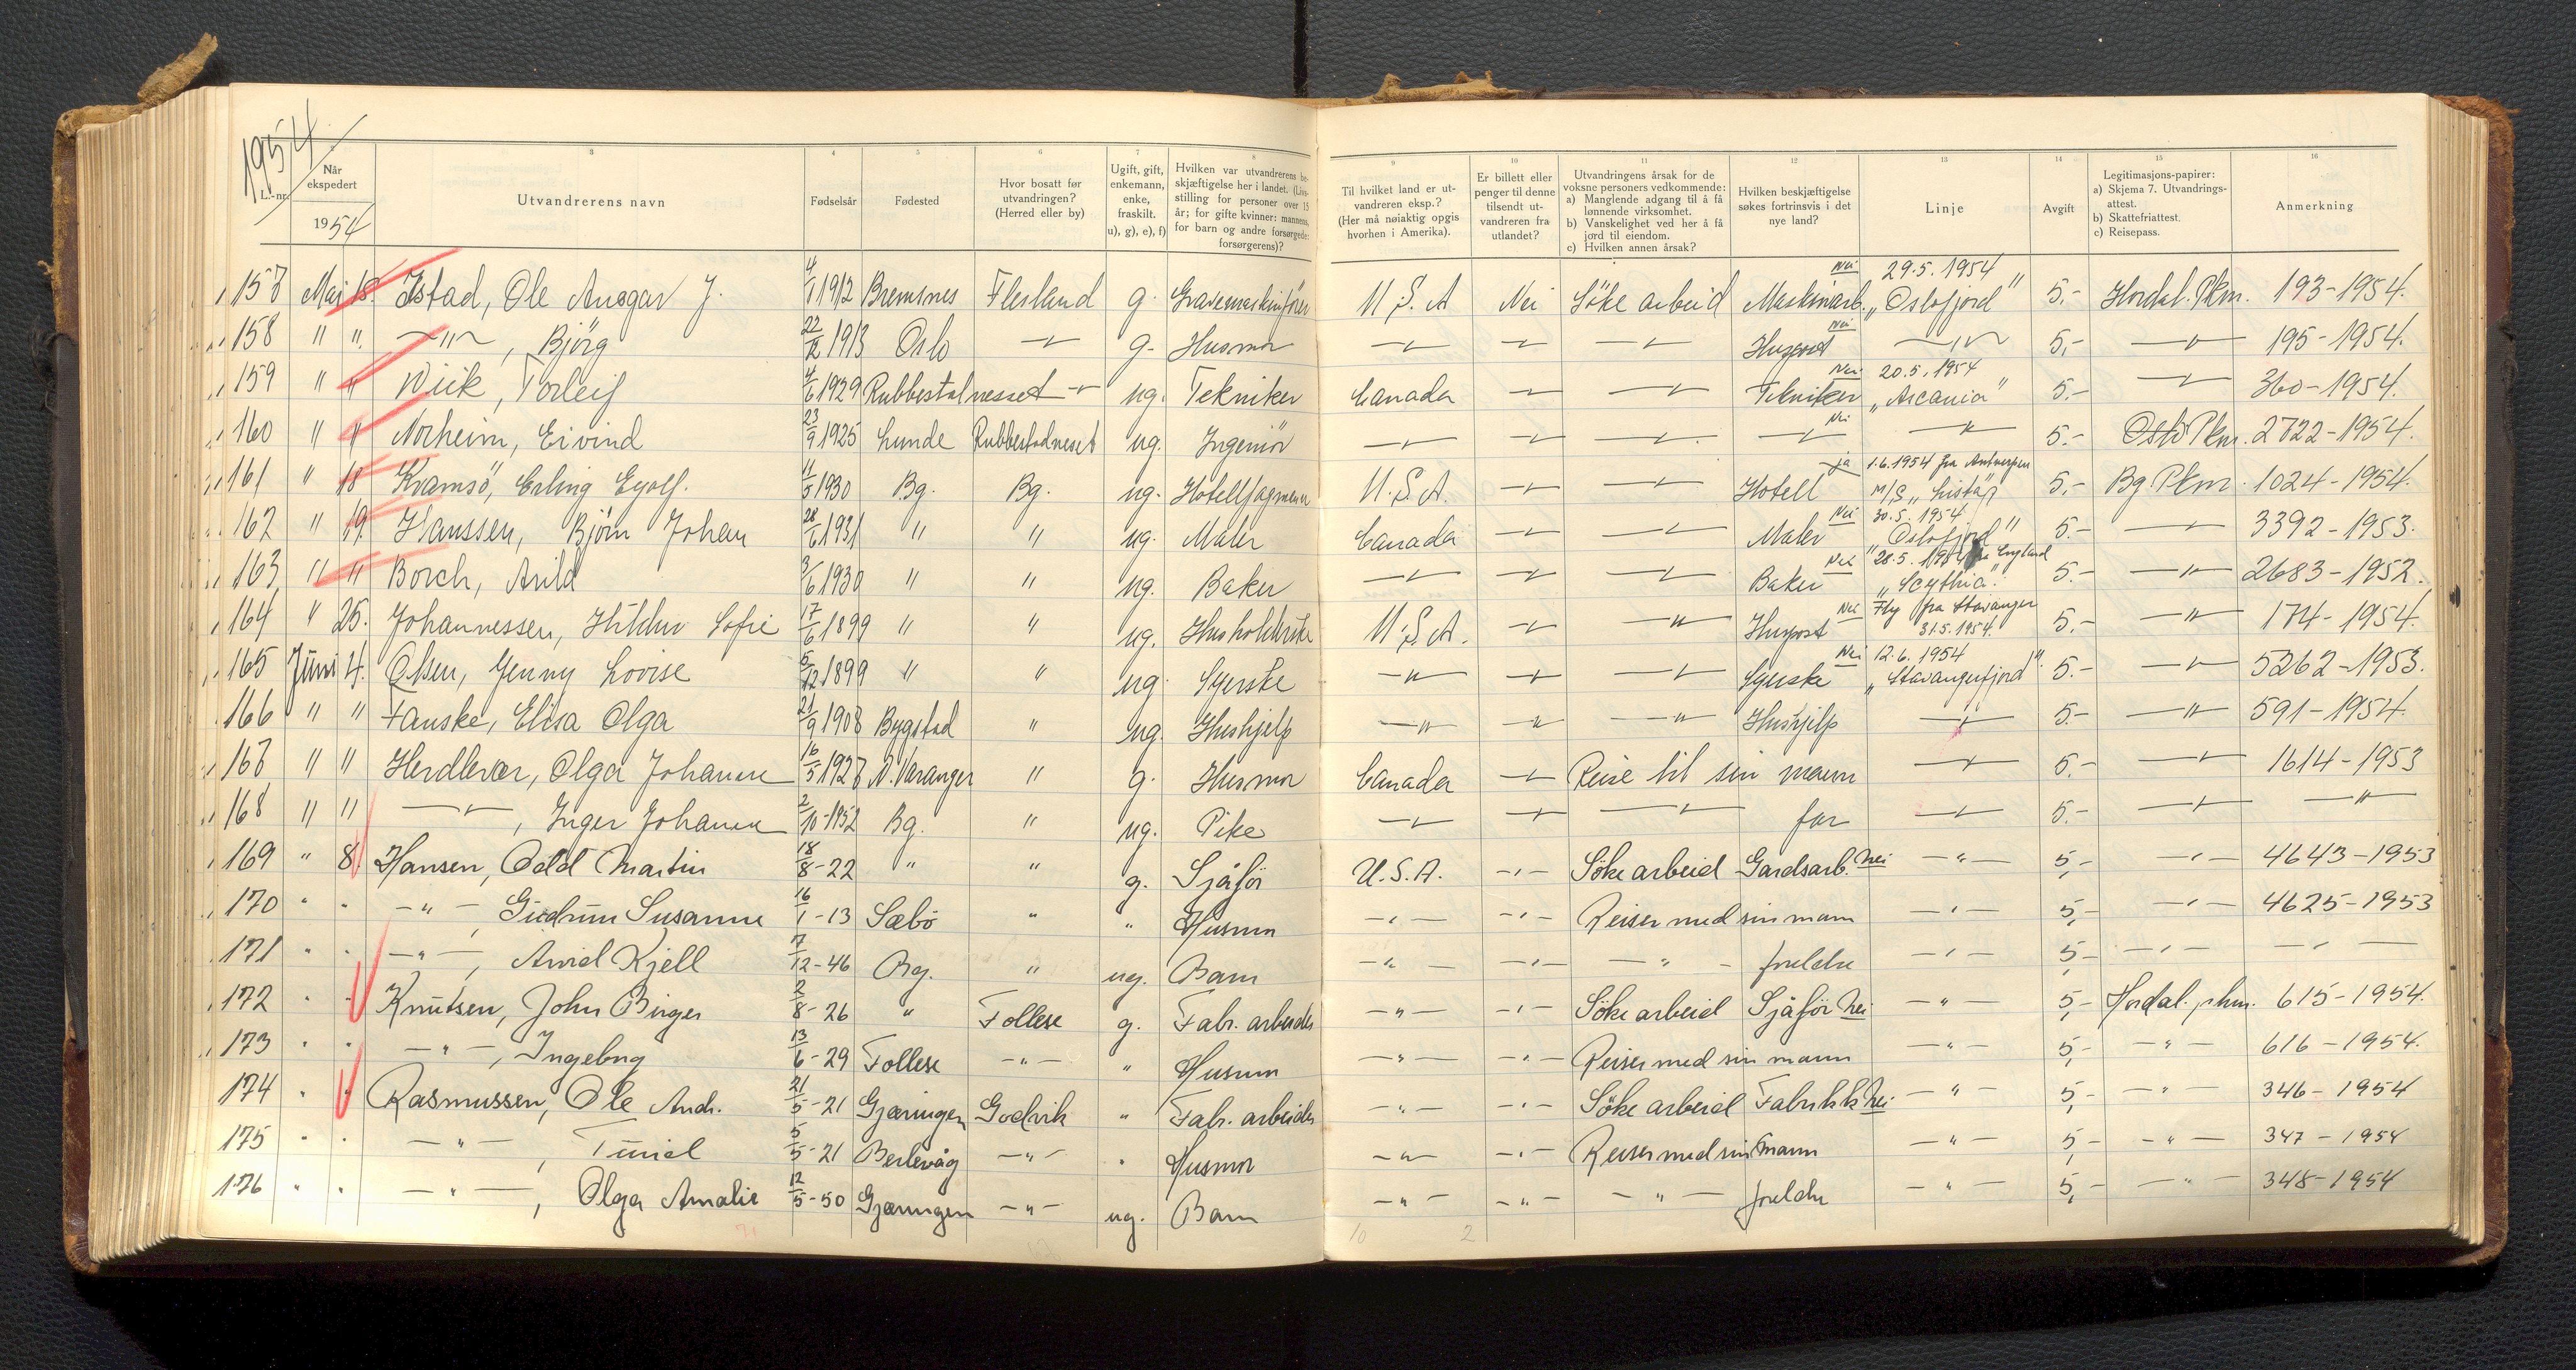 1954
L.-nr. | Når ekspedert 1954 | 3 Utvandrerens navn | 4 Fødselsår | 5 Fødested | 6 Hvor bosatt før utvandringen? (Herred eller by) | 7 Ugift, gift, enkemann, enke, fraskilt. u), g), e), f) | 8 Hvilken var utvandrerens beskjæftigelse her i landet. (Livsstilling for personer over 15 år; for gifte kvinner: mannens, for barn og andre forsørgede: forsørgerens)? | 9 Til hvilket land er utvandreren eksp.? (Her må nøiaktig opgis hvorhen i Amerika). | 10 Er billett eller penger til denne tilsendt utvandreren fra utlandet? | 11 Utvandringens årsak for de voksne personers vedkommende: a) Manglende adgang til å få lønnende virksomhet. b) Vanskelighet ved her å få jord til eiendom. c) Hvilken annen årsak? | 12 Hvilken beskjæftigelse søkes fortrinsvis i det nye land? | 13 Linje | 14 Avgift | 15 Legitimasjons-papirer: a) Skjema 7. Utvandringsattest. b) Skattefriattest. c) Reisepass. | 16 Anmerkning
157 Mai 18. Istad, Ole Ansgar J. 4/1 1912 Bremsnes Flesland g. Gravemaskinfører U.S.A Nei Söke arbeid Maskinarb. Nei 29.5.1954 „Oslofjord" 5.- Hordal. Pkm. 193-1954.
158 " " —"—, Björg 22/12 1913 Oslo —"— g. Husmor —"— —"— —"— Huspost Nei —"— 5.- —"— 195-1954.
159 " " Wiik, Torleif 4/6 1929 Rubbestadnesset —"— ug. Tekniker Canada —"— —"— Tekniker Nei 20.5.1954 „Ascania" 5.- —"— 360-1954.
160 " " Norheim, Eivind 23/9 1925 Lunde Rubbestadneset ug. Ingeniör —"— —"— —"— —"— Nei —"— 5.- Oslo Pkm. 2722-1954.
161 " 18 Kvamsö, Erling Eyolf. 11/5 1930 Bg. Bg. ug. Hotellfagmann U.S.A. —"— —"— Hotell ja 1.6.1954 fra Antwerpen M/S „Lista" 5.- Bg. Pkm. 1024-1954.
162 " 19. Hanssen, Björn Johan 28/6 1931 " " ug. Maler Canada —"— —"— Maler Nei 30.5.1954 „Oslofjord" 5.- —"— 3392-1953.
163 " " Borch, Arild 3/6 1930 " " ug. Baker —"— —"— —"— Baker Nei 28.5.1954 fra England „Scythia" 5.- —"— 2683-1952.
164 " 25. Johannessen, Hildur Sofie 17/6 1899 " " ug. Husholderske U.S.A. —"— —"— Huspost Nei Fly fra Stavanger 31.5.1954. 5.- —"— 174-1954.
165 Juni 4. Olsen, Jenny Lovise 5/12 1899 " " ug. Syerske —"— —"— —"— Syerske Nei 12.6.1954 „Stavangerfjord". 5.- —"— 5262-1953.
166 " " Fauske, Elisa Olga 21/9 1908 Bygstad " ug. Hushjelp —"— —"— —"— Hushjelp —"— 5.- —"— 591-1954.
167 " " Herdlevær, Olga Johanne 16/5 1927 N. Varanger " g. Husmor Canada —"— Reise til sin mann —"— 5.- —"— 1614-1953
168 " " —"—, Inger Johanne 2/10-1952 Bg. " ug. Pike —"— —"— —"— far —"— 5.- —"— —"—
169 " 8. Hansen, Odd Martin 18/8-22 " " g. Sjåför U.S.A. —"— Söke arbeid Gardsarb. Nei —"— 5,- —"— 4643-1953
170 " " —"—, Gudrun Susanne 16/1-13 Sæbö " " Husmor —"— —"— Reiser med sin mann —"— 5,- —"— 4625-1953
171 " " —"—, Arvid Kjell 7/12-46 Bg. " ug. Barn —"— —"— —"— foreldre —"— 5,- —"— —"—
172 " " Knutsen, John Birger 2/8-26 " Follese g. Fabr. arbeider —"— —"— Söke arbeid Sjåför Nei —"— 5,- Hordal. pkm. 615-1954.
173 " " —"—, Ingeborg 13/6-29 Follese —"— " Husmor —"— —"— Reiser med sin mann —"— 5,- —"— 616-1954.
174 " " Rasmussen, Ole Andr. 21/5-21 Gjæringen Godvik " Fabr. arbeider —"— —"— Söke arbeid Fabrikk Nei —"— 5,- —"— 346-1954
175 " " —"—, Turid 5/5-21 Berlevåg —"— " Husmor —"— —"— Reiser med sin mann —"— 5,- —"— 347-1954
176 " " —"—, Olga Amalie 12/5-50 Gjæringen —"— ug. Barn —"— —"— —"— foreldre —"— 5,- —"— 348-1954
10 2